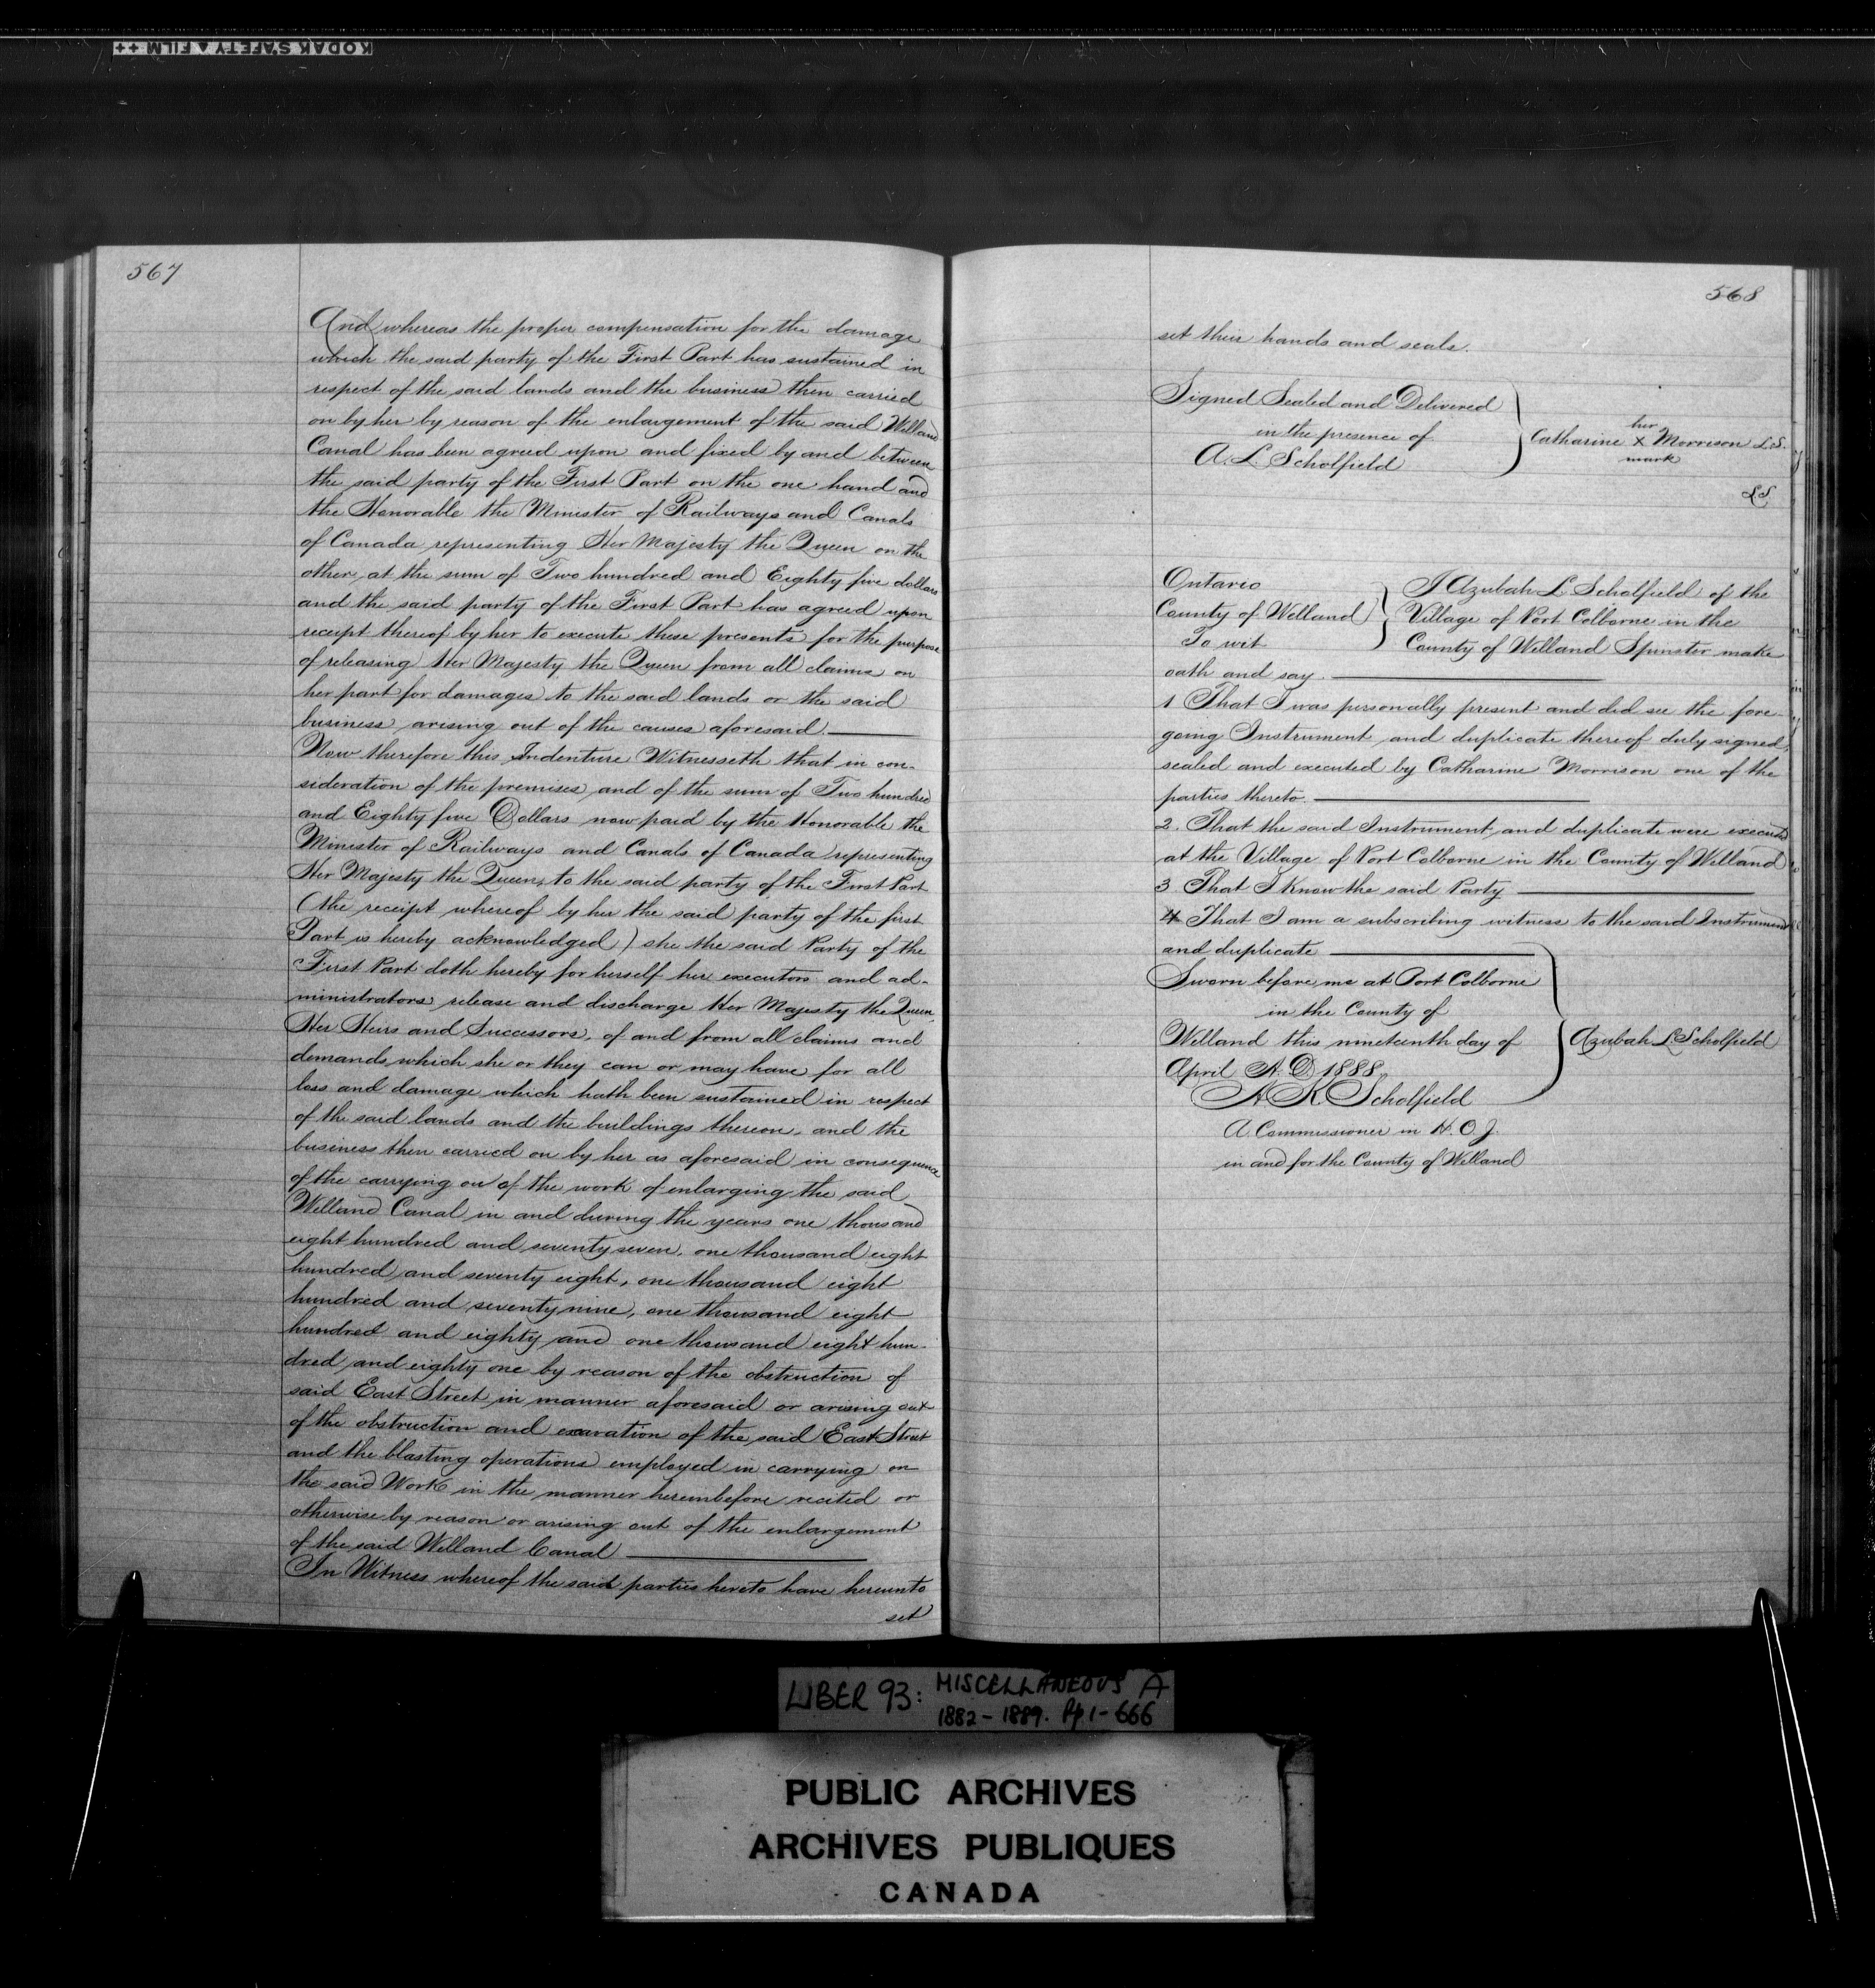 KODAK SAFETY FILM ++
567
And whereas the proper compensation for the damage
which the said party of the First Part has sustained in
respect of the said lands and the business then carried
on by her by reason of the enlargement of the said Welland
Canal has been agreed upon and fixed by and between
the said party of the First Part on the one hand and
the Honorable the Minister of Railways and Canals
of Canada representing Her Majesty the Queen on the
other, at the sum of Two hundred and Eighty five dollars
and the said party of the First Part has agreed upon
receipt thereof by her to execute these presents for the purpose
of releasing Her Majesty the Queen from all claims on
her part for damages to the said lands or the said
business arising out of the causes aforesaid.
Now therefore this Indenture Witnesseth that in con-
sideration of the premises and of the sum of Two hundred
and Eighty five Dollars now paid by the Honorable the
Minister of Railways and Canals of Canada representing
Her Majesty the Queen, to the said party of the First Part
(the receipt whereof by her the said party of the first
Part is hereby acknowledged) she the said Party of the
First Part doth hereby for herself her executors and ad-
ministrators release and discharge Her Majesty the Queen,
Her Heirs and Successors, of and from all claims and
demands which she or they can or may have for all
loss and damage which hath been sustained in respect
of the said lands and the buildings thereon, and the
business then carried on by her as aforesaid in consequence
of the carrying on of the work of enlarging the said
Welland Canal in and during the years one thousand
eight hundred and seventy seven, one thousand eight
hundred and seventy eight, one thousand eight
hundred and seventy nine, one thousand eight
hundred and eighty and one thousand eight hun-
dred and eighty one by reason of the obstruction of
said East Street in manner aforesaid or arising out
of the obstruction and exavation of the said East Street
and the blasting operations employed in carrying on
the said Work in the manner hereinbefore recited or
otherwise by reason or arising out of the enlargement
of the said Welland Canal
In Witness whereof the said parties hereto have hereunto
set
568
set their hands and seals.
Signed Sealed and Delivered
in the presence of
A. L. Scholfield
her
Catharine X Morrison L.S.
mark
LS
Ontario
County of Welland
To wit
I Azubah L Scholfield of the
Village of Port Colborne in the
County of Welland Spinster make
oath and say.
1 That I was personally present and did see the fore-
going Instrument and duplicate thereof duly signed,
sealed and executed by Catharine Morrison one of the
parties thereto.
2. That the said Instrument and duplicate were executed
at the Village of Port Colborne in the County of Welland
3 That I know the said Party
4 That I am a subscribing witness to the said Instrument
and duplicate
Sworn before me at Port Colborne
in the County of
Welland this nineteenth day of
April A. D. 1888,
Azubah L. Scholfield
A K Scholfield
A Commissioner in H. C. J.
in and for the County of Welland
LIBER 93: MISCELLANEOUS A
1882-1889. Pp 1-666
PUBLIC ARCHIVES
ARCHIVES PUBLIQUES
CANADA